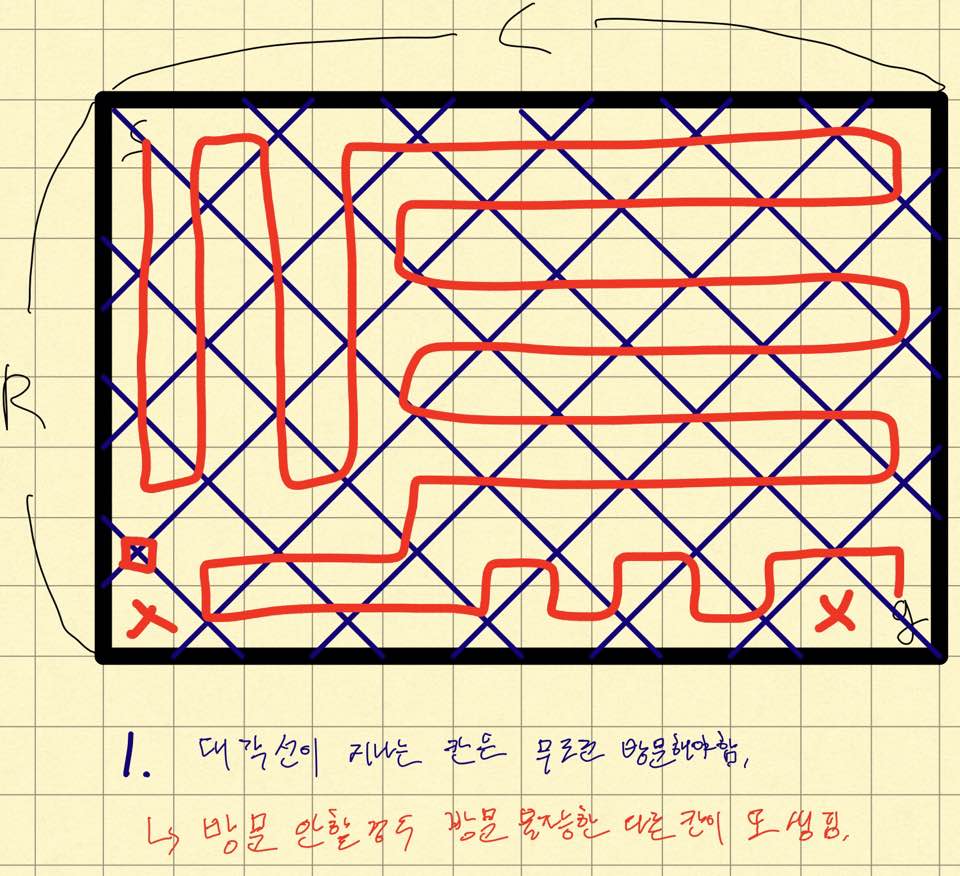 C
S
R
X
X
g
1. 대각선이 지나는 칸은 무조건 방문해야함.
↳ 방문 안할경우 방문 불가능한 다른칸이 또 생김.